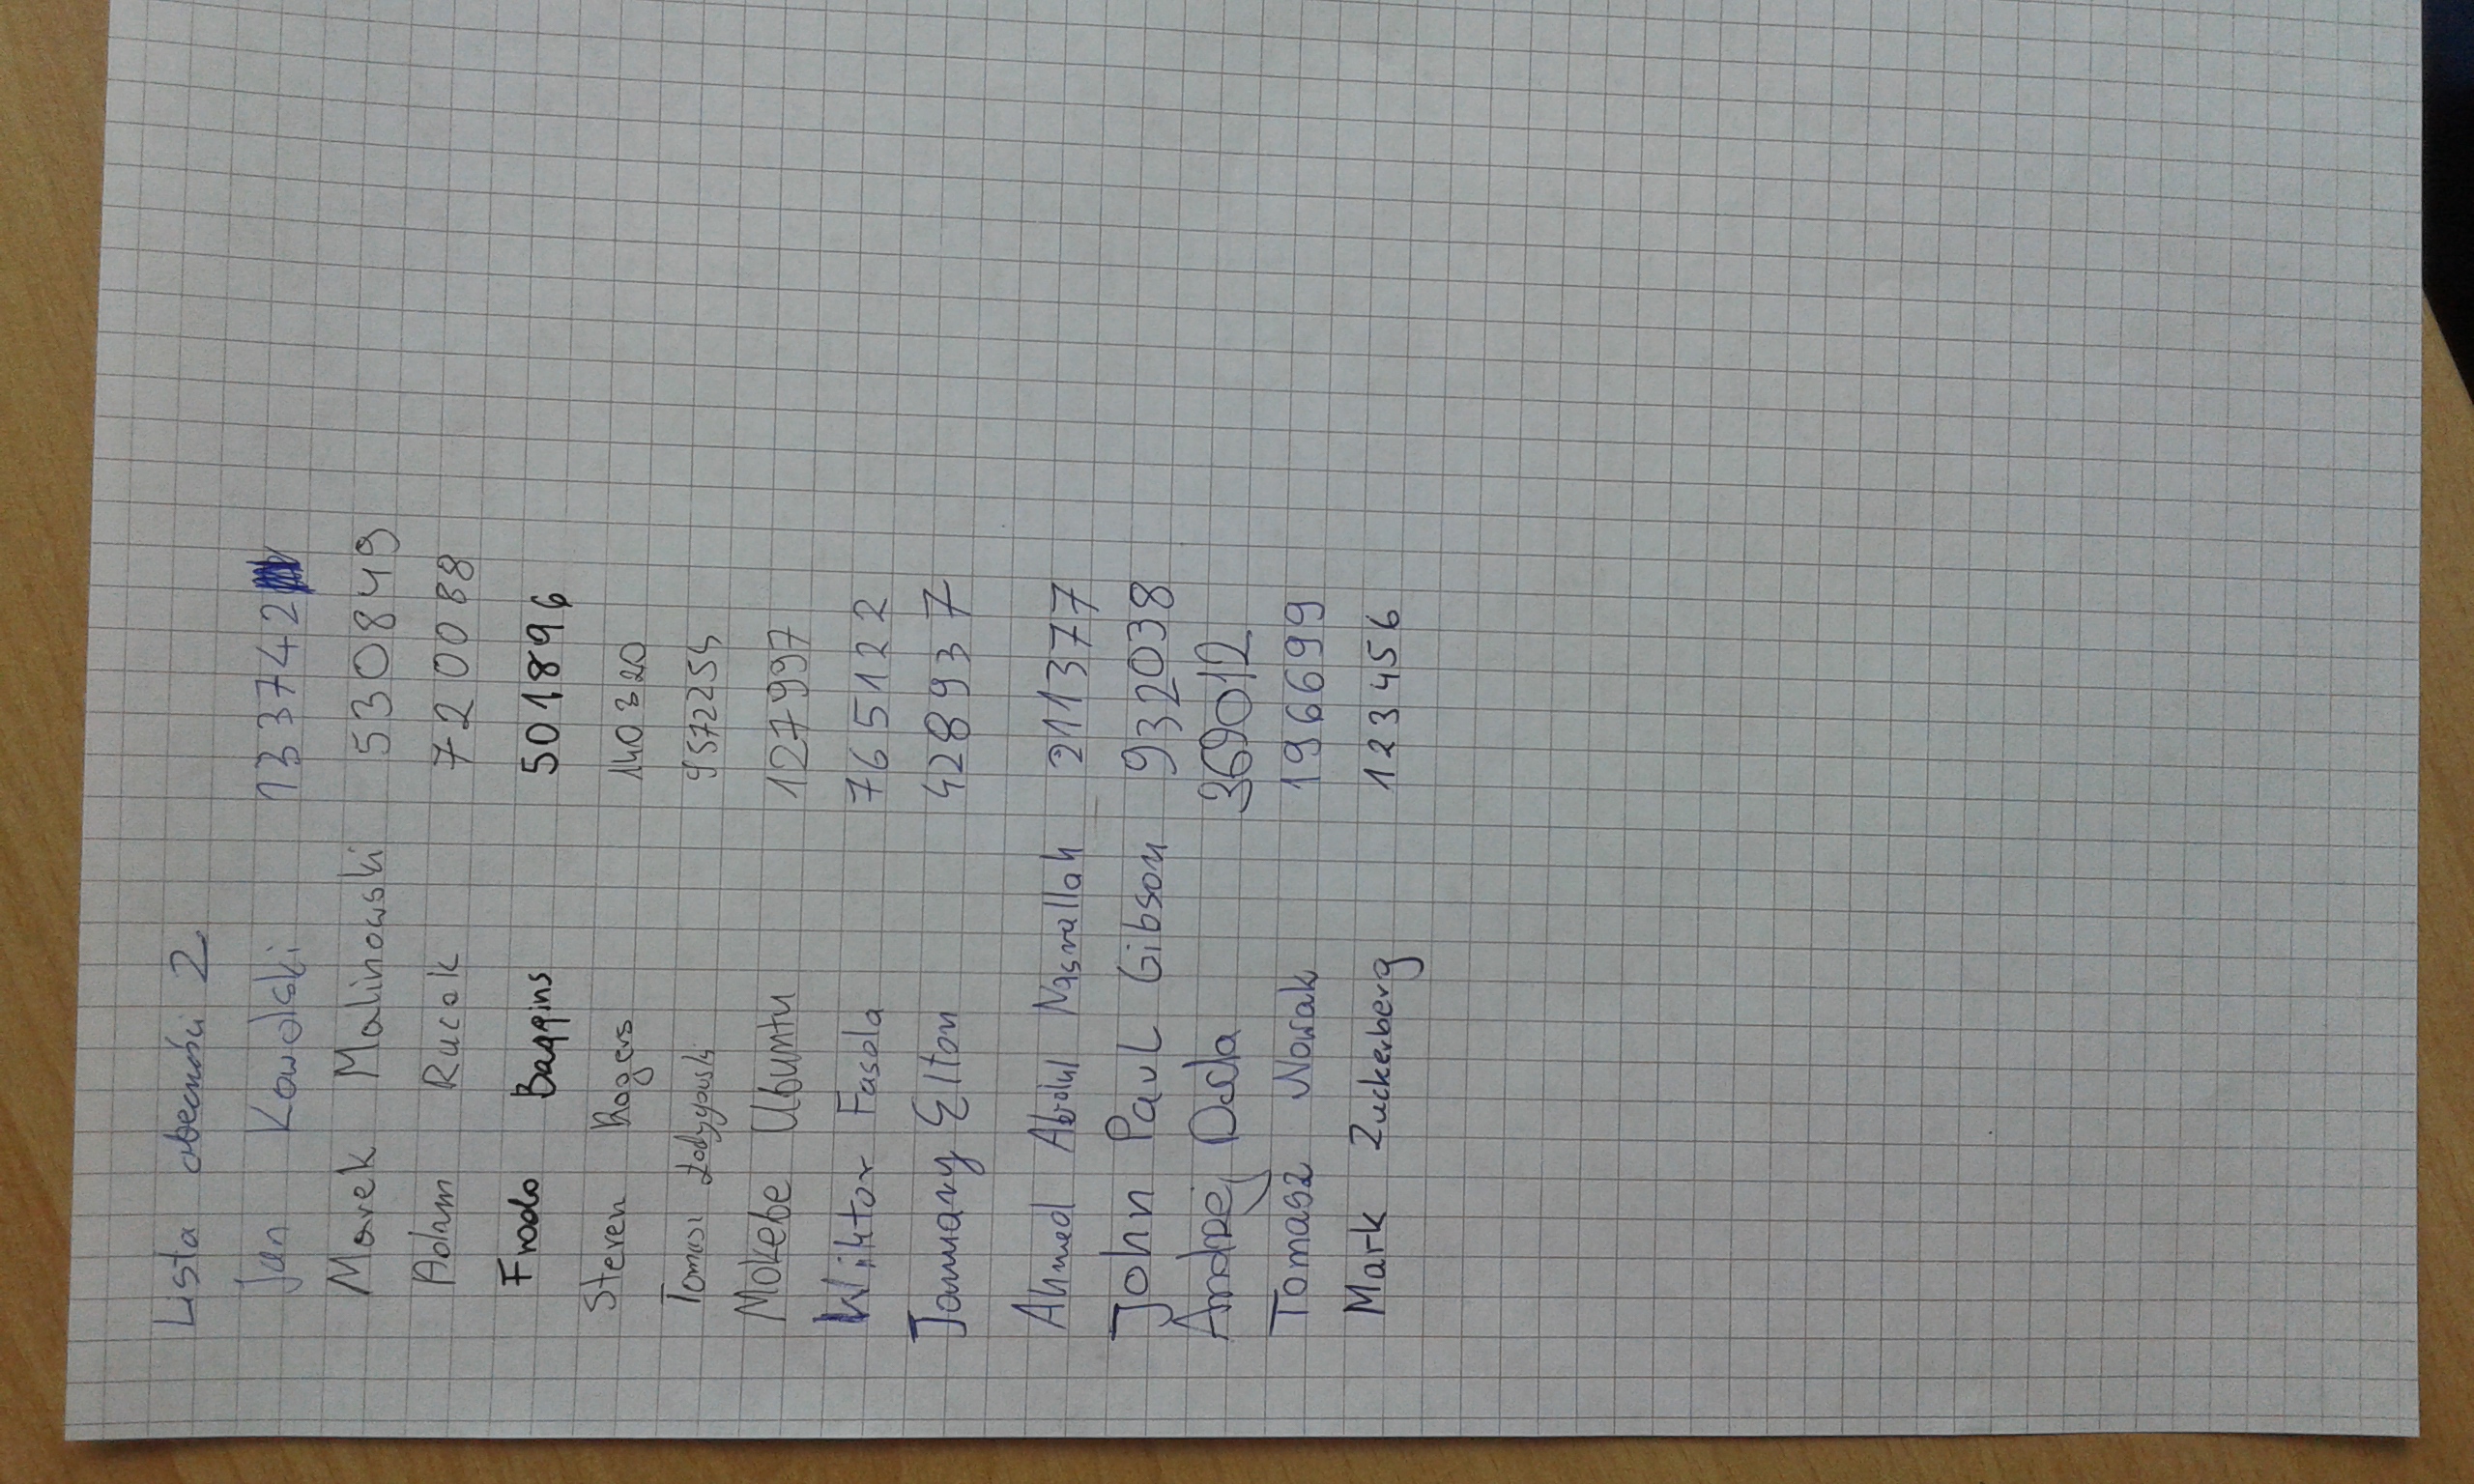 Lista obecności 2
Jan Kowalski 133742
Marek Malinowski 530849
Adam Rucak 720088
Frodo Baggins 501896
Steven Rogers 140320
Tomasz Ładygowski 9572255
Mokebe Ubuntu 127997
Wiktor Fasola 765122
January Elton 428937
Ahmed Abdul Nasrallah 211377
John Paul Gibson 932038
Andrzej Duda 369012
Tomasz Nowak 196699
Mark Zuckerberg 123456